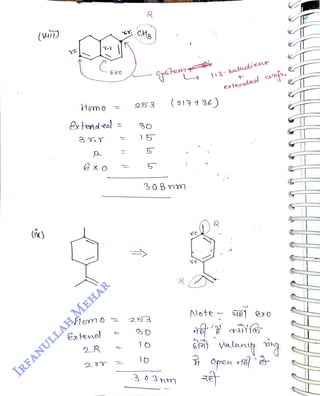 R
(viii)
rr
CH3
rr
r-r
Exo
System
1·3-butadiene
+
extended conju.
Homo = 253 (217+36)
Extended = 30
3 r.r = 15
R = 5
Exo = 5
308 nm
(ix)
R
rr
⇒
rr
R
Homo = 253
Extend = 30
2R = 10
2 rr = 10
303 nm
Note – यहाँ exo
नहीं है क्योंकि
दोनों Valancy ring
में open नहीं हो
रही
IRFANULLAH MEHAR